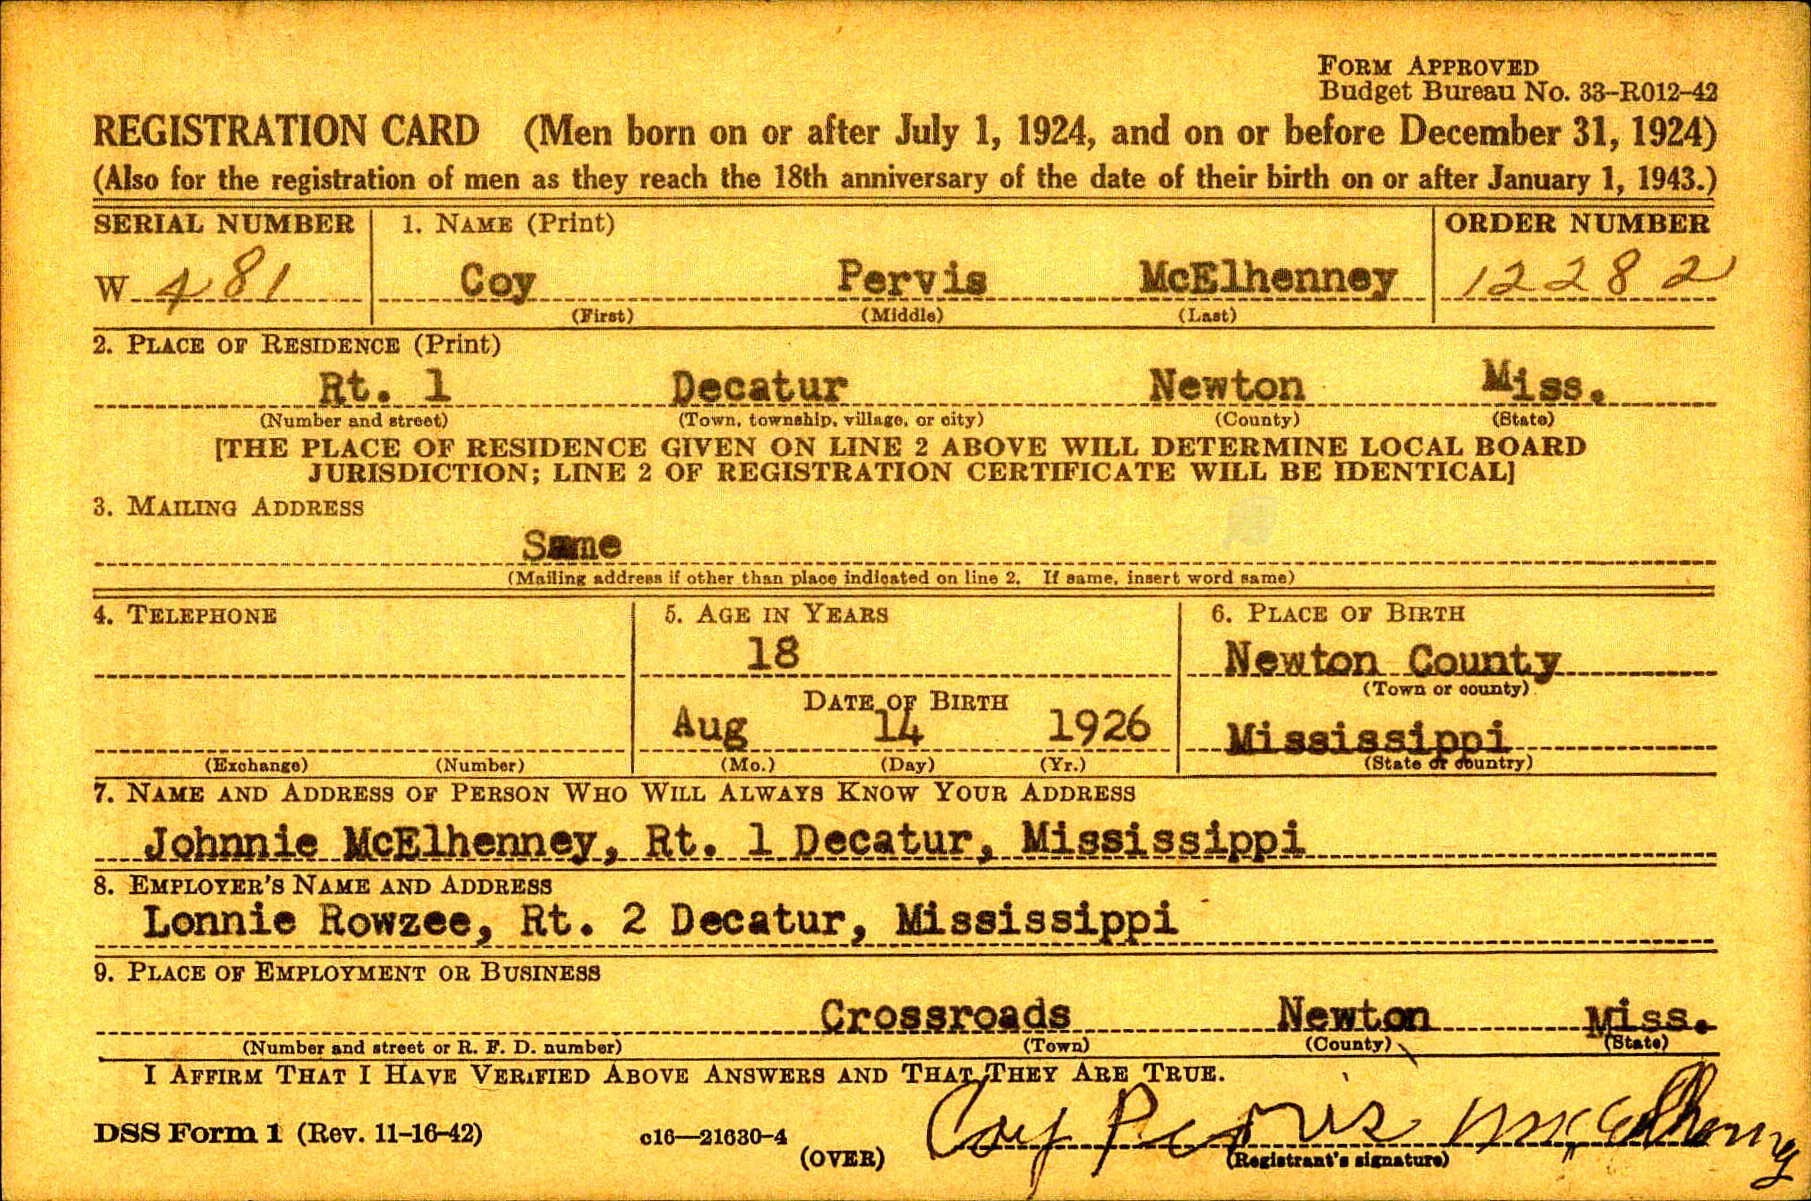 FORM APPROVED
Budget Bureau No. 33-R012-42
REGISTRATION CARD (Men born on or after July 1, 1924, and on or before December 31, 1924)
(Also for the registration of men as they reach the 18th anniversary of the date of their birth on or after January 1, 1943.)
SERIAL NUMBER 1. NAME (Print) ORDER NUMBER
W 481 Coy Pervis McElhenney 12282
(First) (Middle) (Last)
2. PLACE OF RESIDENCE (Print)
Rt. 1 Decatur Newton Miss.
(Number and street) (Town, township, village, or city) (County) (State)
[THE PLACE OF RESIDENCE GIVEN ON LINE 2 ABOVE WILL DETERMINE LOCAL BOARD
JURISDICTION; LINE 2 OF REGISTRATION CERTIFICATE WILL BE IDENTICAL]
3. MAILING ADDRESS
Same
(Mailing address if other than place indicated on line 2. If same, insert word same)
4. TELEPHONE 5. AGE IN YEARS 6. PLACE OF BIRTH
18 Newton County
(Town or county)
DATE OF BIRTH
Aug 14 1926 Mississippi
(Exchange) (Number) (Mo.) (Day) (Yr.) (State or country)
7. NAME AND ADDRESS OF PERSON WHO WILL ALWAYS KNOW YOUR ADDRESS
Johnnie McElhenney, Rt. 1 Decatur, Mississippi
8. EMPLOYER'S NAME AND ADDRESS
Lonnie Rowzee, Rt. 2 Decatur, Mississippi
9. PLACE OF EMPLOYMENT OR BUSINESS
Crossroads Newton Miss.
(Number and street or R. F. D. number) (Town) (County) (State)
I AFFIRM THAT I HAVE VERIFIED ABOVE ANSWERS AND THAT THEY ARE TRUE.
DSS Form 1 (Rev. 11-16-42) c16—21630-4 (OVER) Coy Pervis
(Registrant's signature)